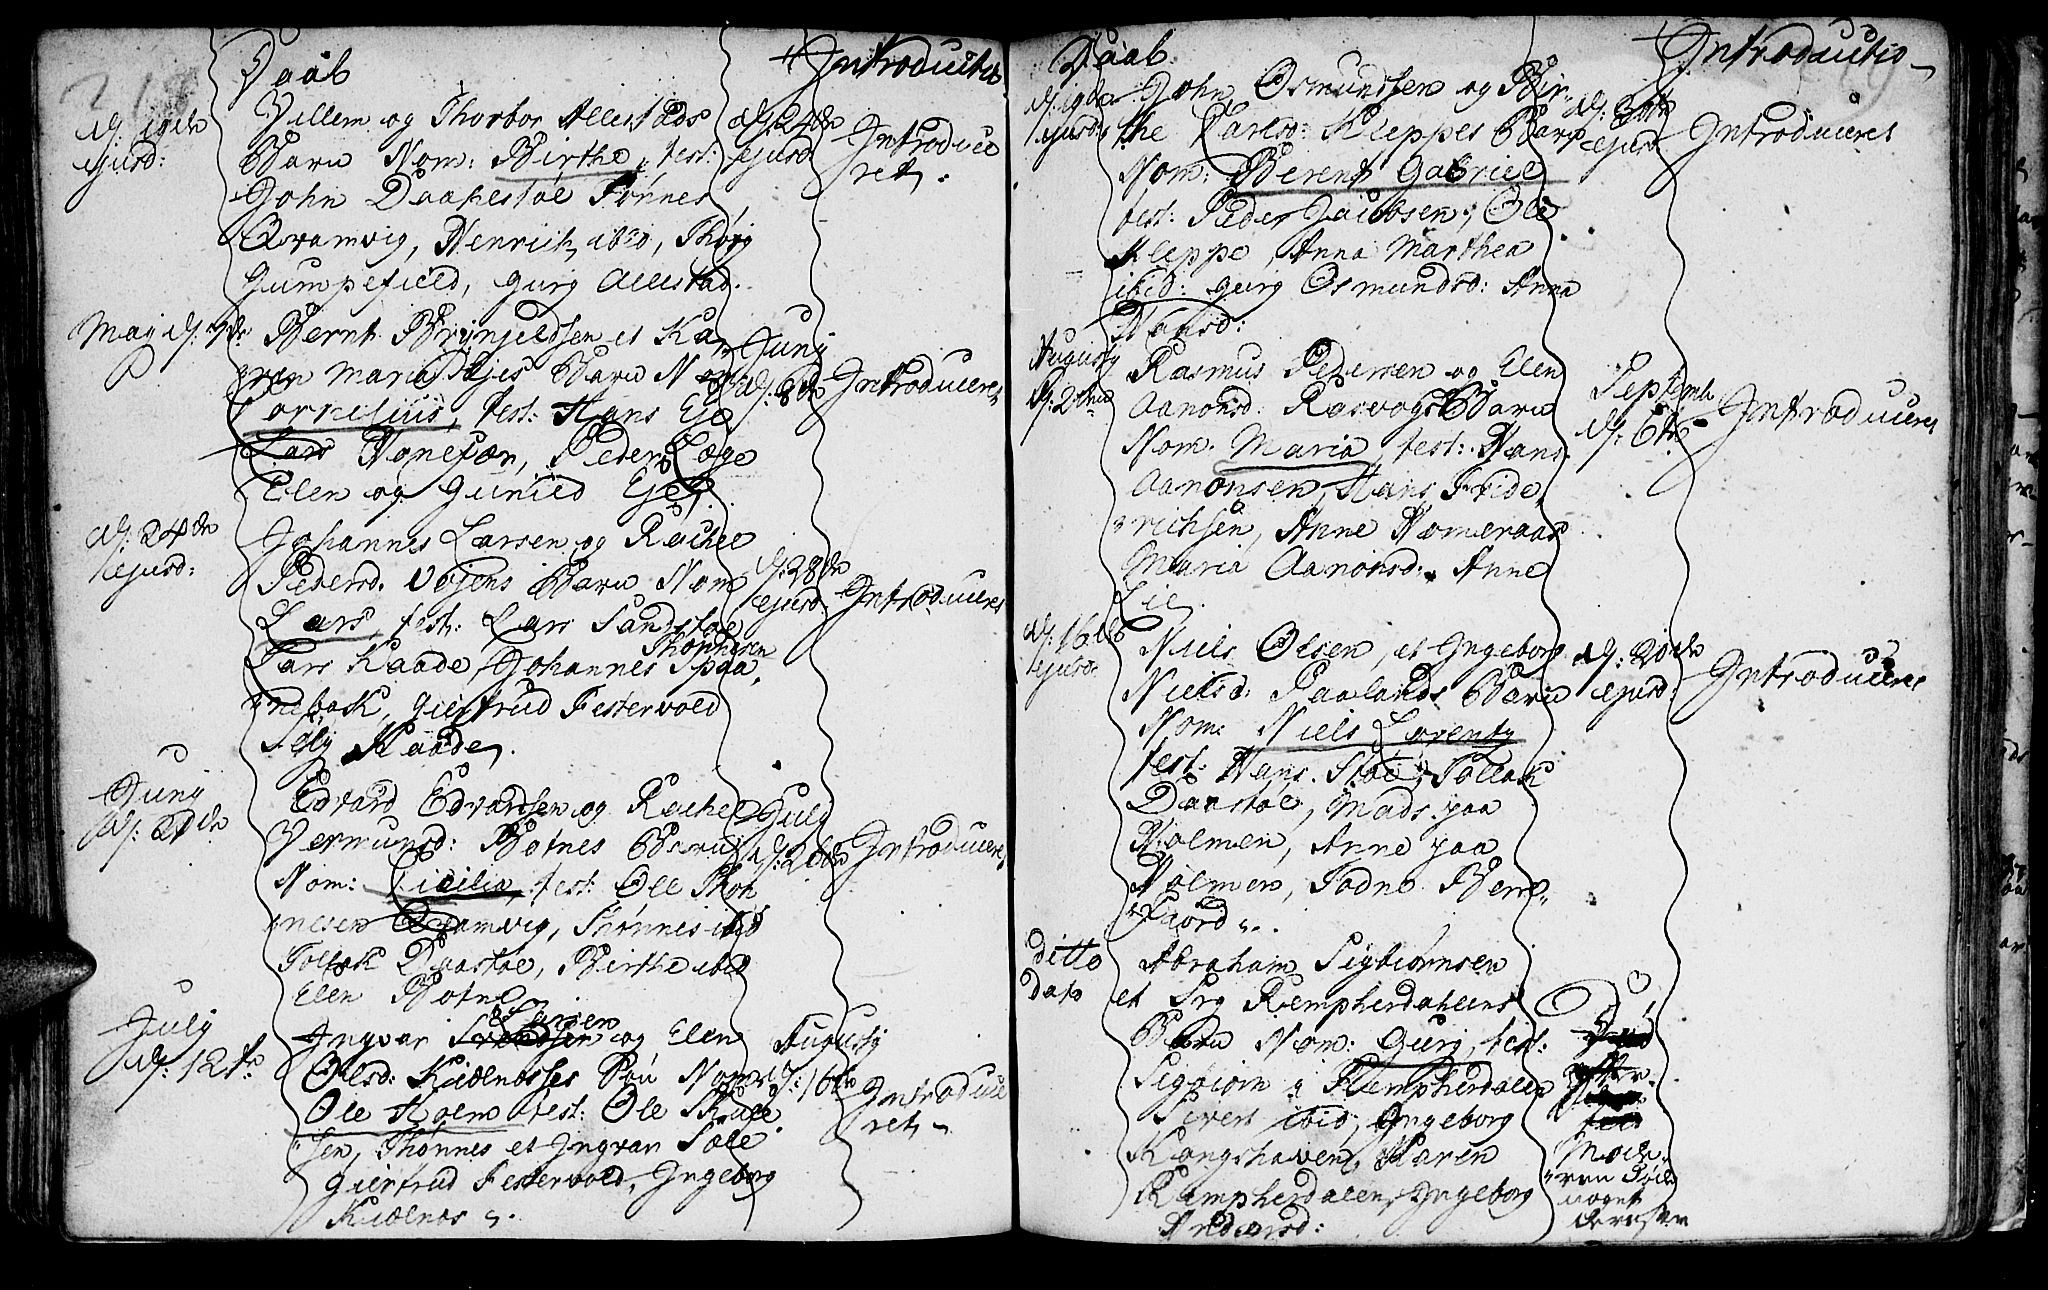 218
Daab
Introductio
d: 19de
ejusd:
Villem og Thorbor Allestads
Barn Nom: Birthe, test:
John Daalestøe Tønnes
Qvamvig, Henrich ibid, Thorg
Gumpefield, Gurg Allestad.
d: 24de
ejusd
Introduce
ret.
May d: 7de
Bernt Brynjeldsen et Ka
ren Maria Ejes Barn Nom
Cornelius, test: Hans Eje
Lars Hanesøn, Peder Læge
Elen og Gunild Eje.
Juny
d: 8de
Introduceret
d: 24de
ejusd:
Johannes Larsen og Rachel
Pedersd. Vojens Barn Nom
Lars, test: Lars Sandstøe
Thonnesen
Lars Kaade, Johannes Spaa
nebæk, Giertrud Festervold
Kaade.
d: 28de
ejusd
Introduceret
Juny
d: 21de
Edvard Edvardsen og Rachel
Vermunsd: Botnes Barn
Nom: Cicilia, test: Ole Thon
nesen Qvamvig, Thønnes ibid
Tollak Daastøe, Birthe ibid
Elen Botne
July
d: 26de
Introduceret
July
d: 12te
Larsen
Ingvar og Elen
Olsd: Kielnesses Søn Nom
Ole Holm test: Ole
sen, Thønnes et Ingvar Søle
Giertrud Festervold, Ingeborg
Kielnes.
Augusty
d: 16de
Introduce
ret
Daab.
Introductio
d: 19de
ejusd:
John Osmundsen og Bir
the Carlsd: Kleppes Barn
Nom: Berent Gabriel
test: Peder Jacobsen, Ole
Kleppe, Anna Marthea
ibid: Gurg Osmundsd: Anna
Hansd:
d: 30te
ejusd
Introduceret
Augusty
d: 2den
Rasmus Pedersen og Elen
Aanonsd: Rasvogs Barn
Nom. Maria, test: Hans
Aanonsen, Hans Fride
richsen, Anne Homeraas
Maria Aanonsd: Anne
Lie
Septemb
d: 6te
Introduceret
d: 16de
ejusd:
Niels Olsen, et Ingeborg
Nielsd: Paalands Barn
Nom: Niels Lorentz
test: Hans Støe, Tollak
Daastøe, Mads paa
Holmen, Anne paa
Holmen, Todne Berre
Fiord.
d: 20de
ejusd:
Introduceret
ditto
dato
Abraham Sigbiørnsen
et Srg Rempherdahlens
Barn Nom: Gurg, test:
Sigbiørn i Rempherdalen
Sivert ibid, Ingeborg
Kongshavn, Karen
Rempherdalen, Ingeborg
Andersd:
Mode
ren Døde
noget
derefter